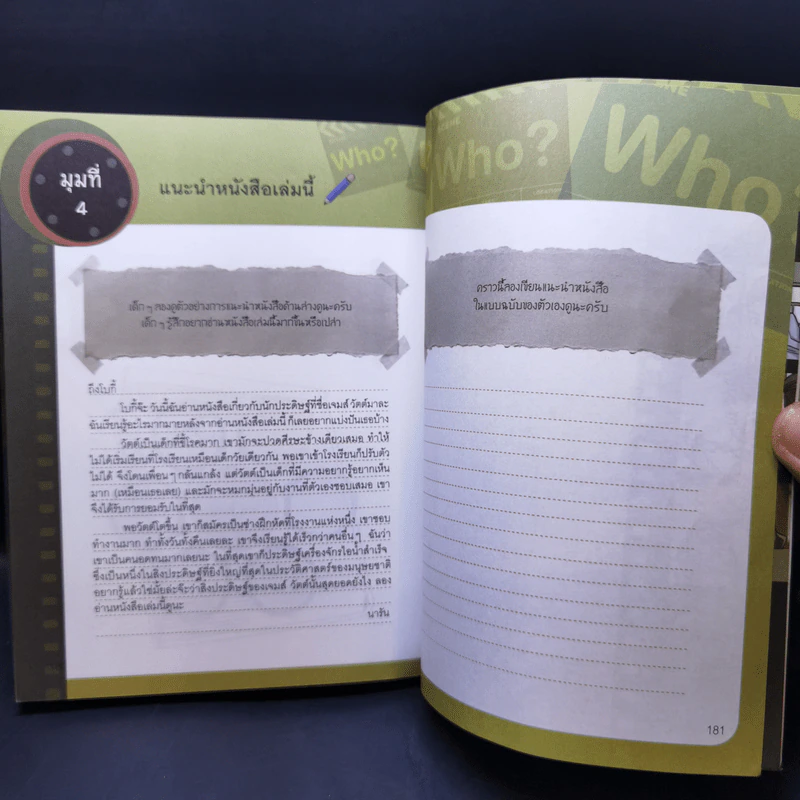 มุมที่
4
แนะนำหนังสือเล่มนี้
Who?
เด็ก ๆ ลองดูตัวอย่างการแนะนำหนังสือด้านล่างดูนะครับ
เด็ก ๆ รู้สึกอยากอ่านหนังสือเล่มนี้มากขึ้นหรือเปล่า
ถึงโบกี้
โบกี้จ๊ะ วันนี้ฉันอ่านหนังสือเกี่ยวกับนักประดิษฐ์ที่ชื่อเจมส์ วัตต์มาละ
ฉันเรียนรู้อะไรมากมายหลังจากอ่านหนังสือเล่มนี้ ก็เลยอยากแบ่งปันเธอบ้าง
วัตต์เป็นเด็กที่ขี้โรคมาก เขามักจะปวดศีรษะข้างเดียวเสมอ ทำให้
ไม่ได้เริ่มเรียนที่โรงเรียนเหมือนเด็กวัยเดียวกัน พอเขาเข้าโรงเรียนก็ปรับตัว
ไม่ได้ จึงโดนเพื่อน ๆ กลั่นแกล้ง แต่วัตต์เป็นเด็กที่มีความอยากรู้อยากเห็น
มาก (เหมือนเธอเลย) และมักจะหมกมุ่นอยู่กับงานที่ตัวเองชอบเสมอ เขา
จึงได้รับการยอมรับในที่สุด
พอวัตต์โตขึ้น เขาก็สมัครเป็นช่างฝึกหัดที่โรงงานแห่งหนึ่ง เขาชอบ
ทำงานมาก ทำทั้งวันทั้งคืนเลยละ เขาจึงเรียนรู้ได้เร็วกว่าคนอื่นๆ ฉันว่า
เขาเป็นคนอดทนมากเลยนะ ในที่สุดเขาก็ประดิษฐ์เครื่องจักรไอน้ำสำเร็จ
ซึ่งเป็นหนึ่งในสิ่งประดิษฐ์ที่ยิ่งใหญ่ที่สุดในประวัติศาสตร์ของมนุษยชาติ
อยากรู้แล้วใช่มั้ยล่ะจ๊ะว่าสิ่งประดิษฐ์ของเจมส์ วัตต์นั้นสุดยอดยังไง ลอง
อ่านหนังสือเล่มนี้ดูนะ
นารัน
Who?
Who?
คราวนี้ลองเขียนแนะนำหนังสือ
ในแบบฉบับของตัวเองดูนะครับ
181